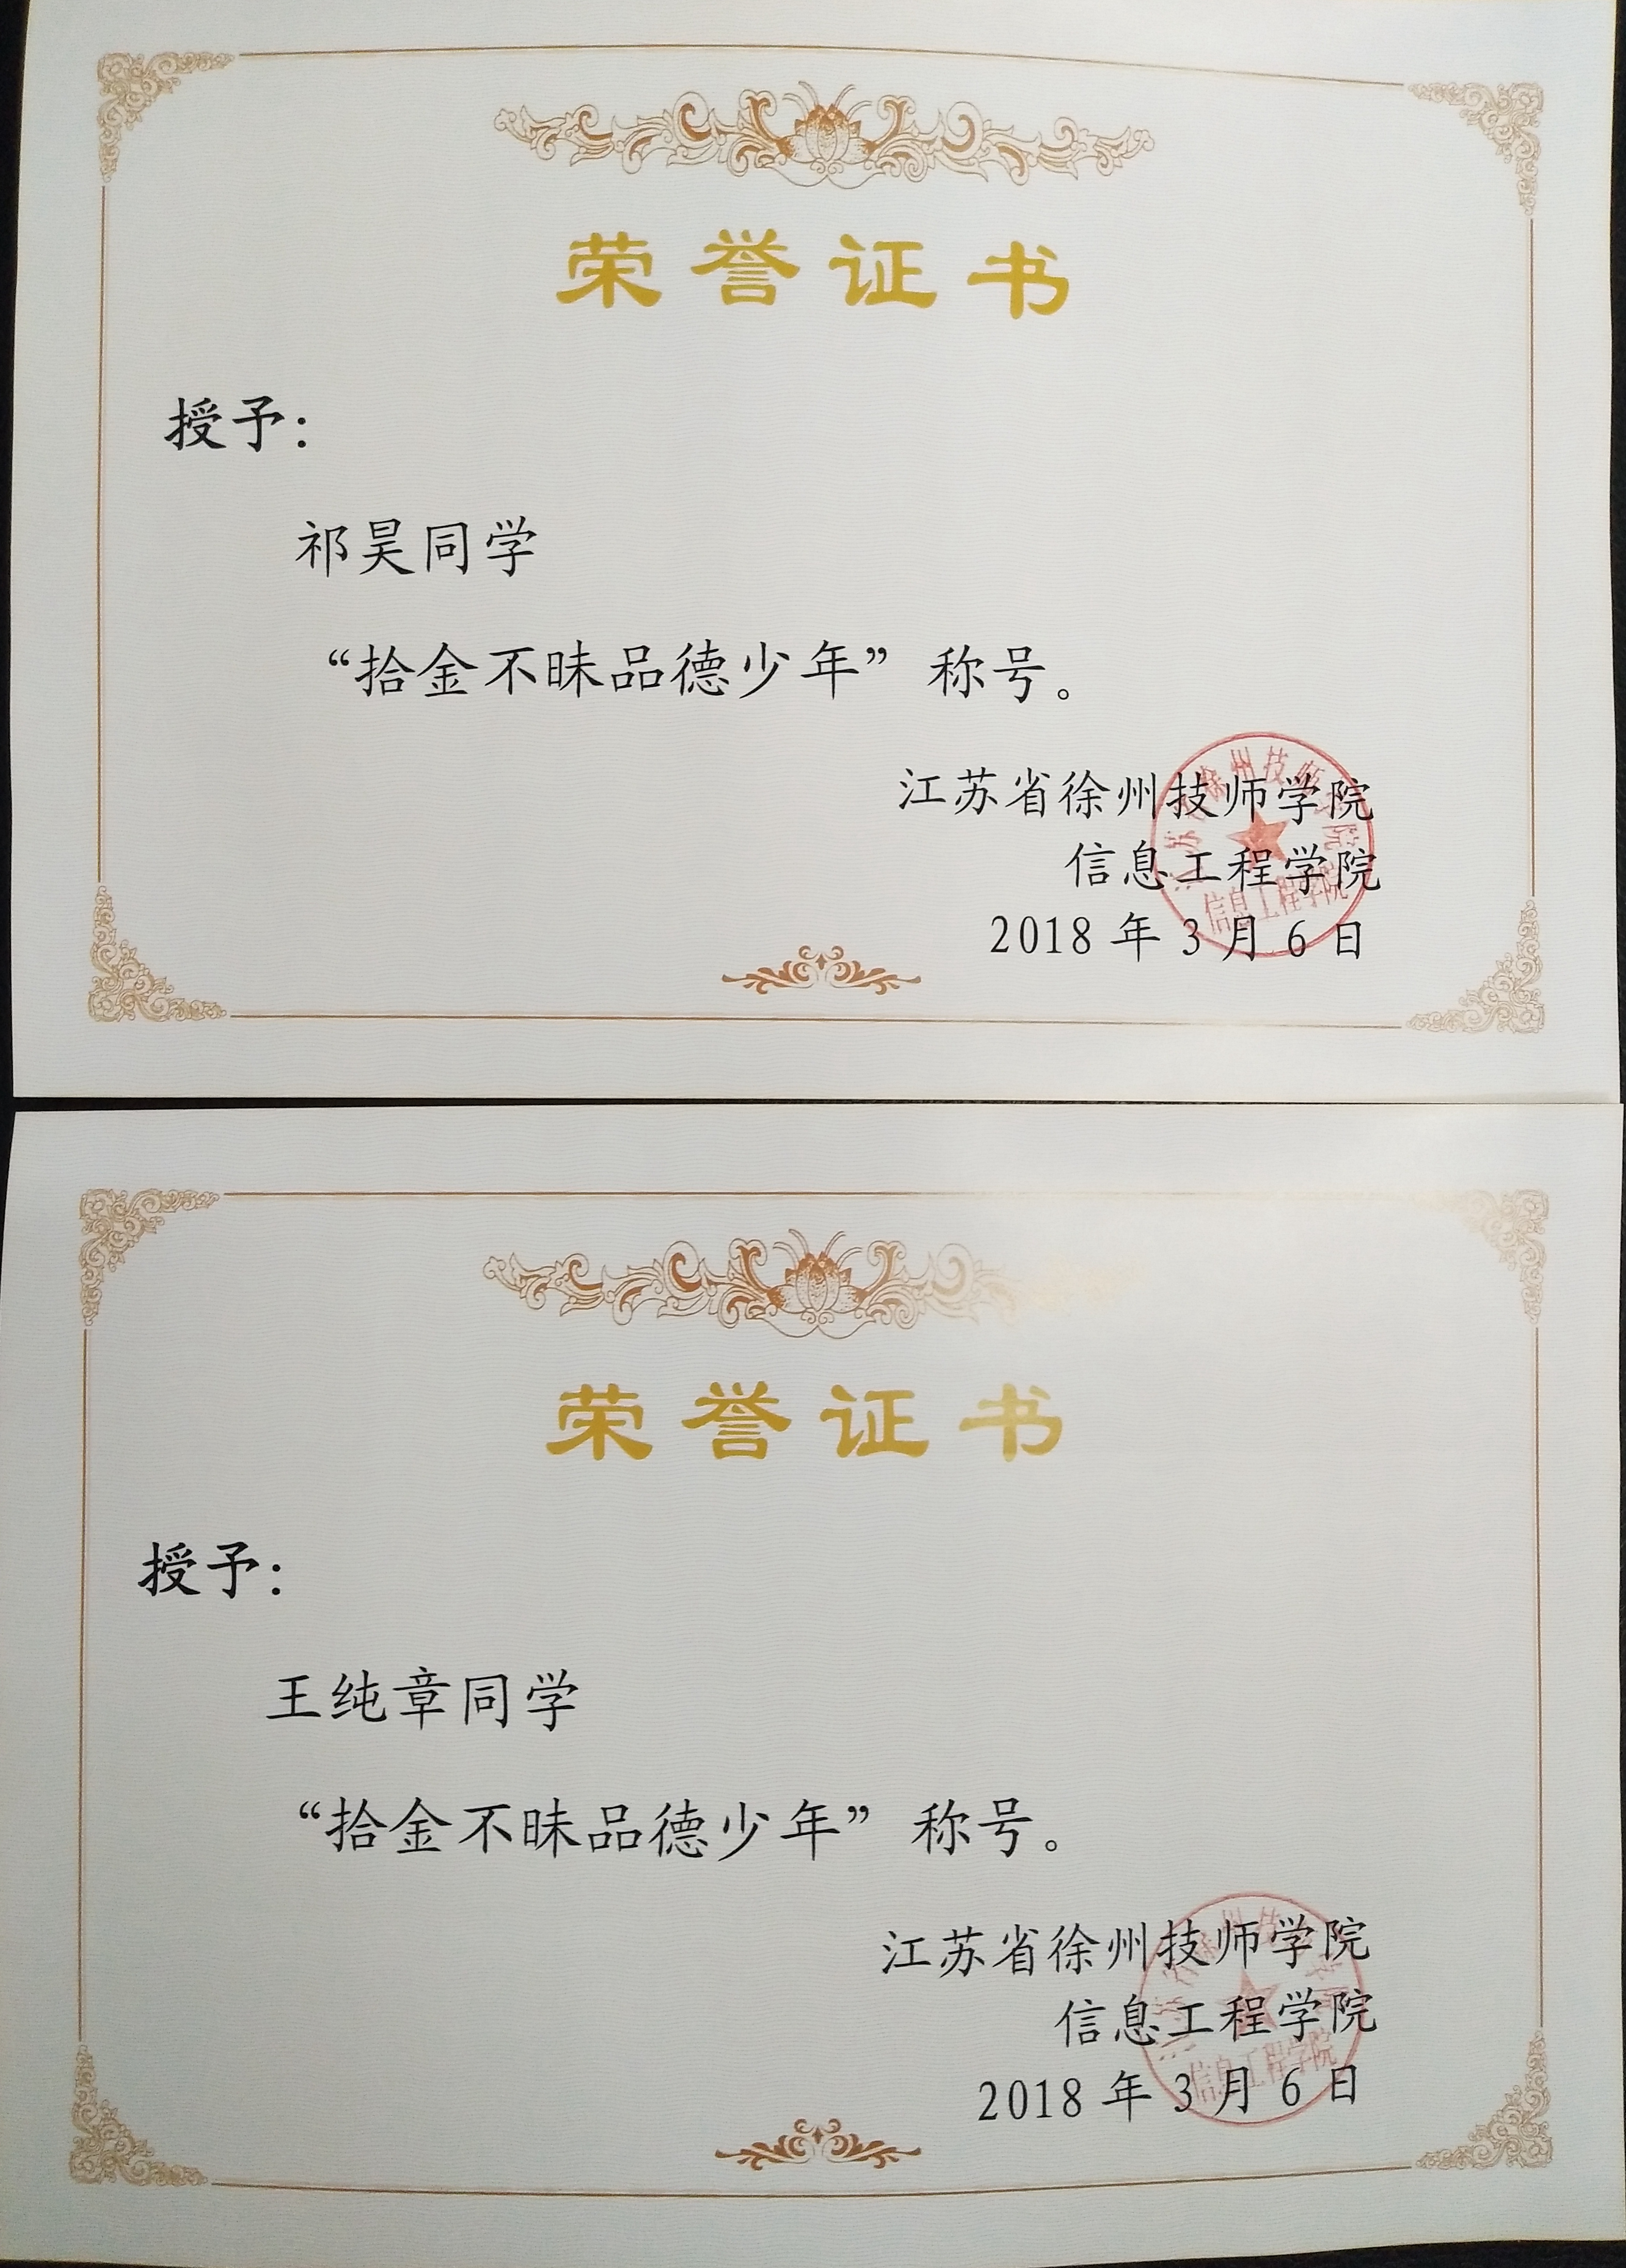 荣誉证书
授予：
祁昊同学
“拾金不昧品德少年”称号。
江苏省徐州技师学院
信息工程学院
2018年3月6日
信息工程学院
荣誉证书
授予：
王纯章同学
“拾金不昧品德少年”称号。
江苏省徐州技师学院
信息工程学院
2018年3月6日
信息工程学院